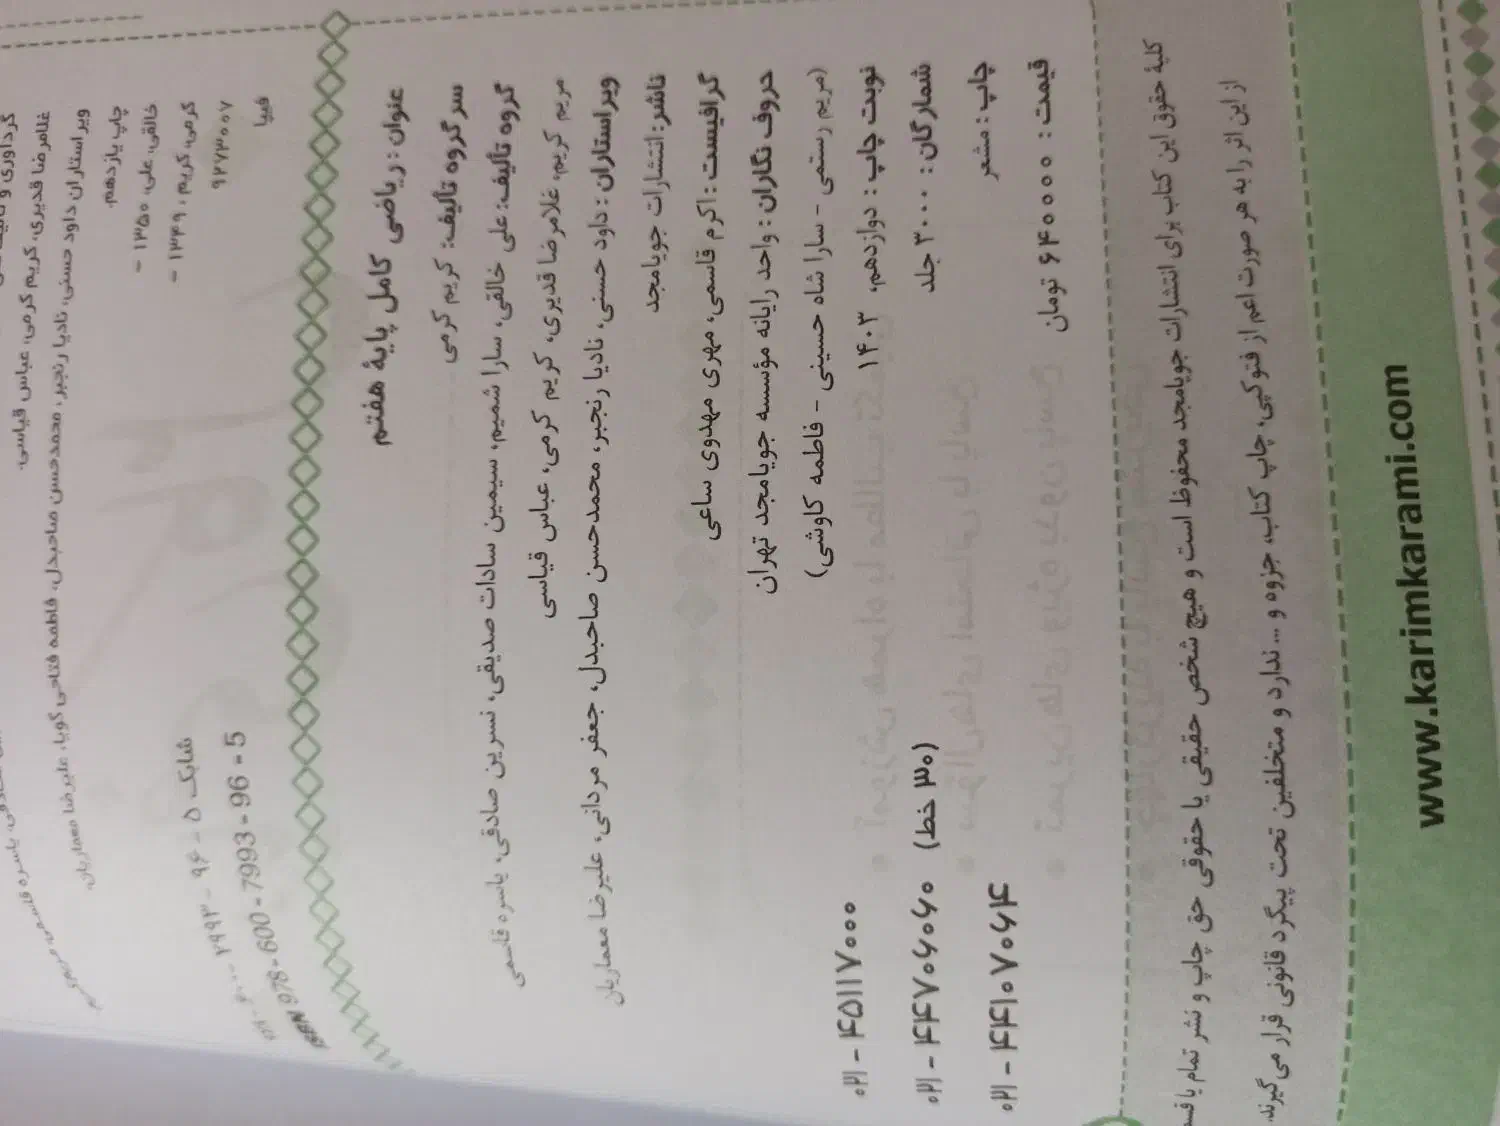 گردآوری و
غلامرضا قدیری، کریم کرمی، عباس قیاسی.
ویراستاران داود حسنی، نادیا رنجبر، محمدحسن صاحبدل، فاطمه فتاحی گویا، علیرضا معماریان.
چاپ یازدهم.
خالقی، علی، ۱۳۵۰ -
کرمی، کریم، ۱۳۴۹ -
شابک ۵ - ۹۶ - ۷۹۹۳ - ۶۰۰ - ۹۷۸
۹۲۷۳۰۰۷
ISBN 978 - 600 - 7993 - 96 - 5
فیپا
عنوان : ریاضی کامل پایهٔ هفتم
سر گروه تألیف: کریم کرمی
گروه تألیف: علی خالقی، سارا شمیم، سیمین سادات صدیقی، نسرین صادقی، یاسره قاسمی
مریم کریم، غلامرضا قدیری، کریم کرمی، عباس قیاسی
ویراستاران : داود حسنی، نادیا رنجبر، محمدحسن صاحبدل، جعفر مردانی، علیرضا معماریان
ناشر: انتشارات جویامجد
گرافیست : اکرم قاسمی، مهری مهدوی ساعی
حروف نگاران : واحد رایانه مؤسسه جویامجد تهران
(مریم رستمی - سارا شاه حسینی - فاطمه کاوشی)
نوبت چاپ : دوازدهم، ۱۴۰۳
۰۲۱ - ۴۵۱۱۷۰۰۰
شمارگان : ۳۰۰۰ جلد
۰۲۱ - ۴۴۷۰۶۰۶۰ (۳۰ خط)
چاپ : مشعر
۰۲۱ - ۴۴۱۰۷۰۶۴
قیمت : ۶۴۰۰۰۰ تومان
کلیهٔ حقوق این کتاب برای انتشارات جویامجد محفوظ است و هیچ شخص حقیقی یا حقوقی حق چاپ و نشر تمام یا قسم
از این اثر را به هر صورت اعم از فتوکپی، چاپ کتاب، جزوه و ... ندارد و متخلفین تحت پیگرد قانونی قرار می‌گیرند.
www.karimkarami.com